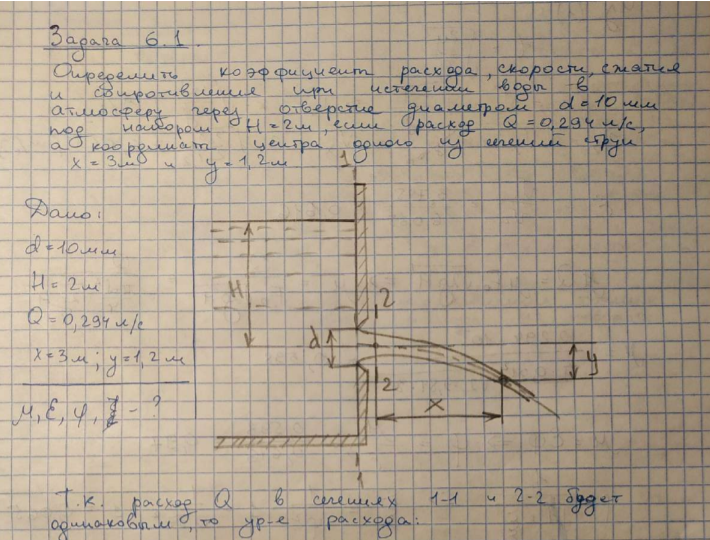 Задача 6.1.
Определить коэффициент расхода, скорости, сжатия
и сопротивления при истечении воды в
атмосферу через отверстие диаметром d=10 мм
под напором H=2м, если расход Q=0,294 л/с,
а координаты центра одного из сечений струи
x=3м и y=1,2м
1
Дано:
d=10мм
H=2м
Q=0,294 л/с
x=3м; y=1,2м
μ, ε, φ, ξ - ?
H
2
d
y
2
x
1
Т.к. расход Q в сечениях 1-1 и 2-2 будет
одинаковым, то ур-е расхода: